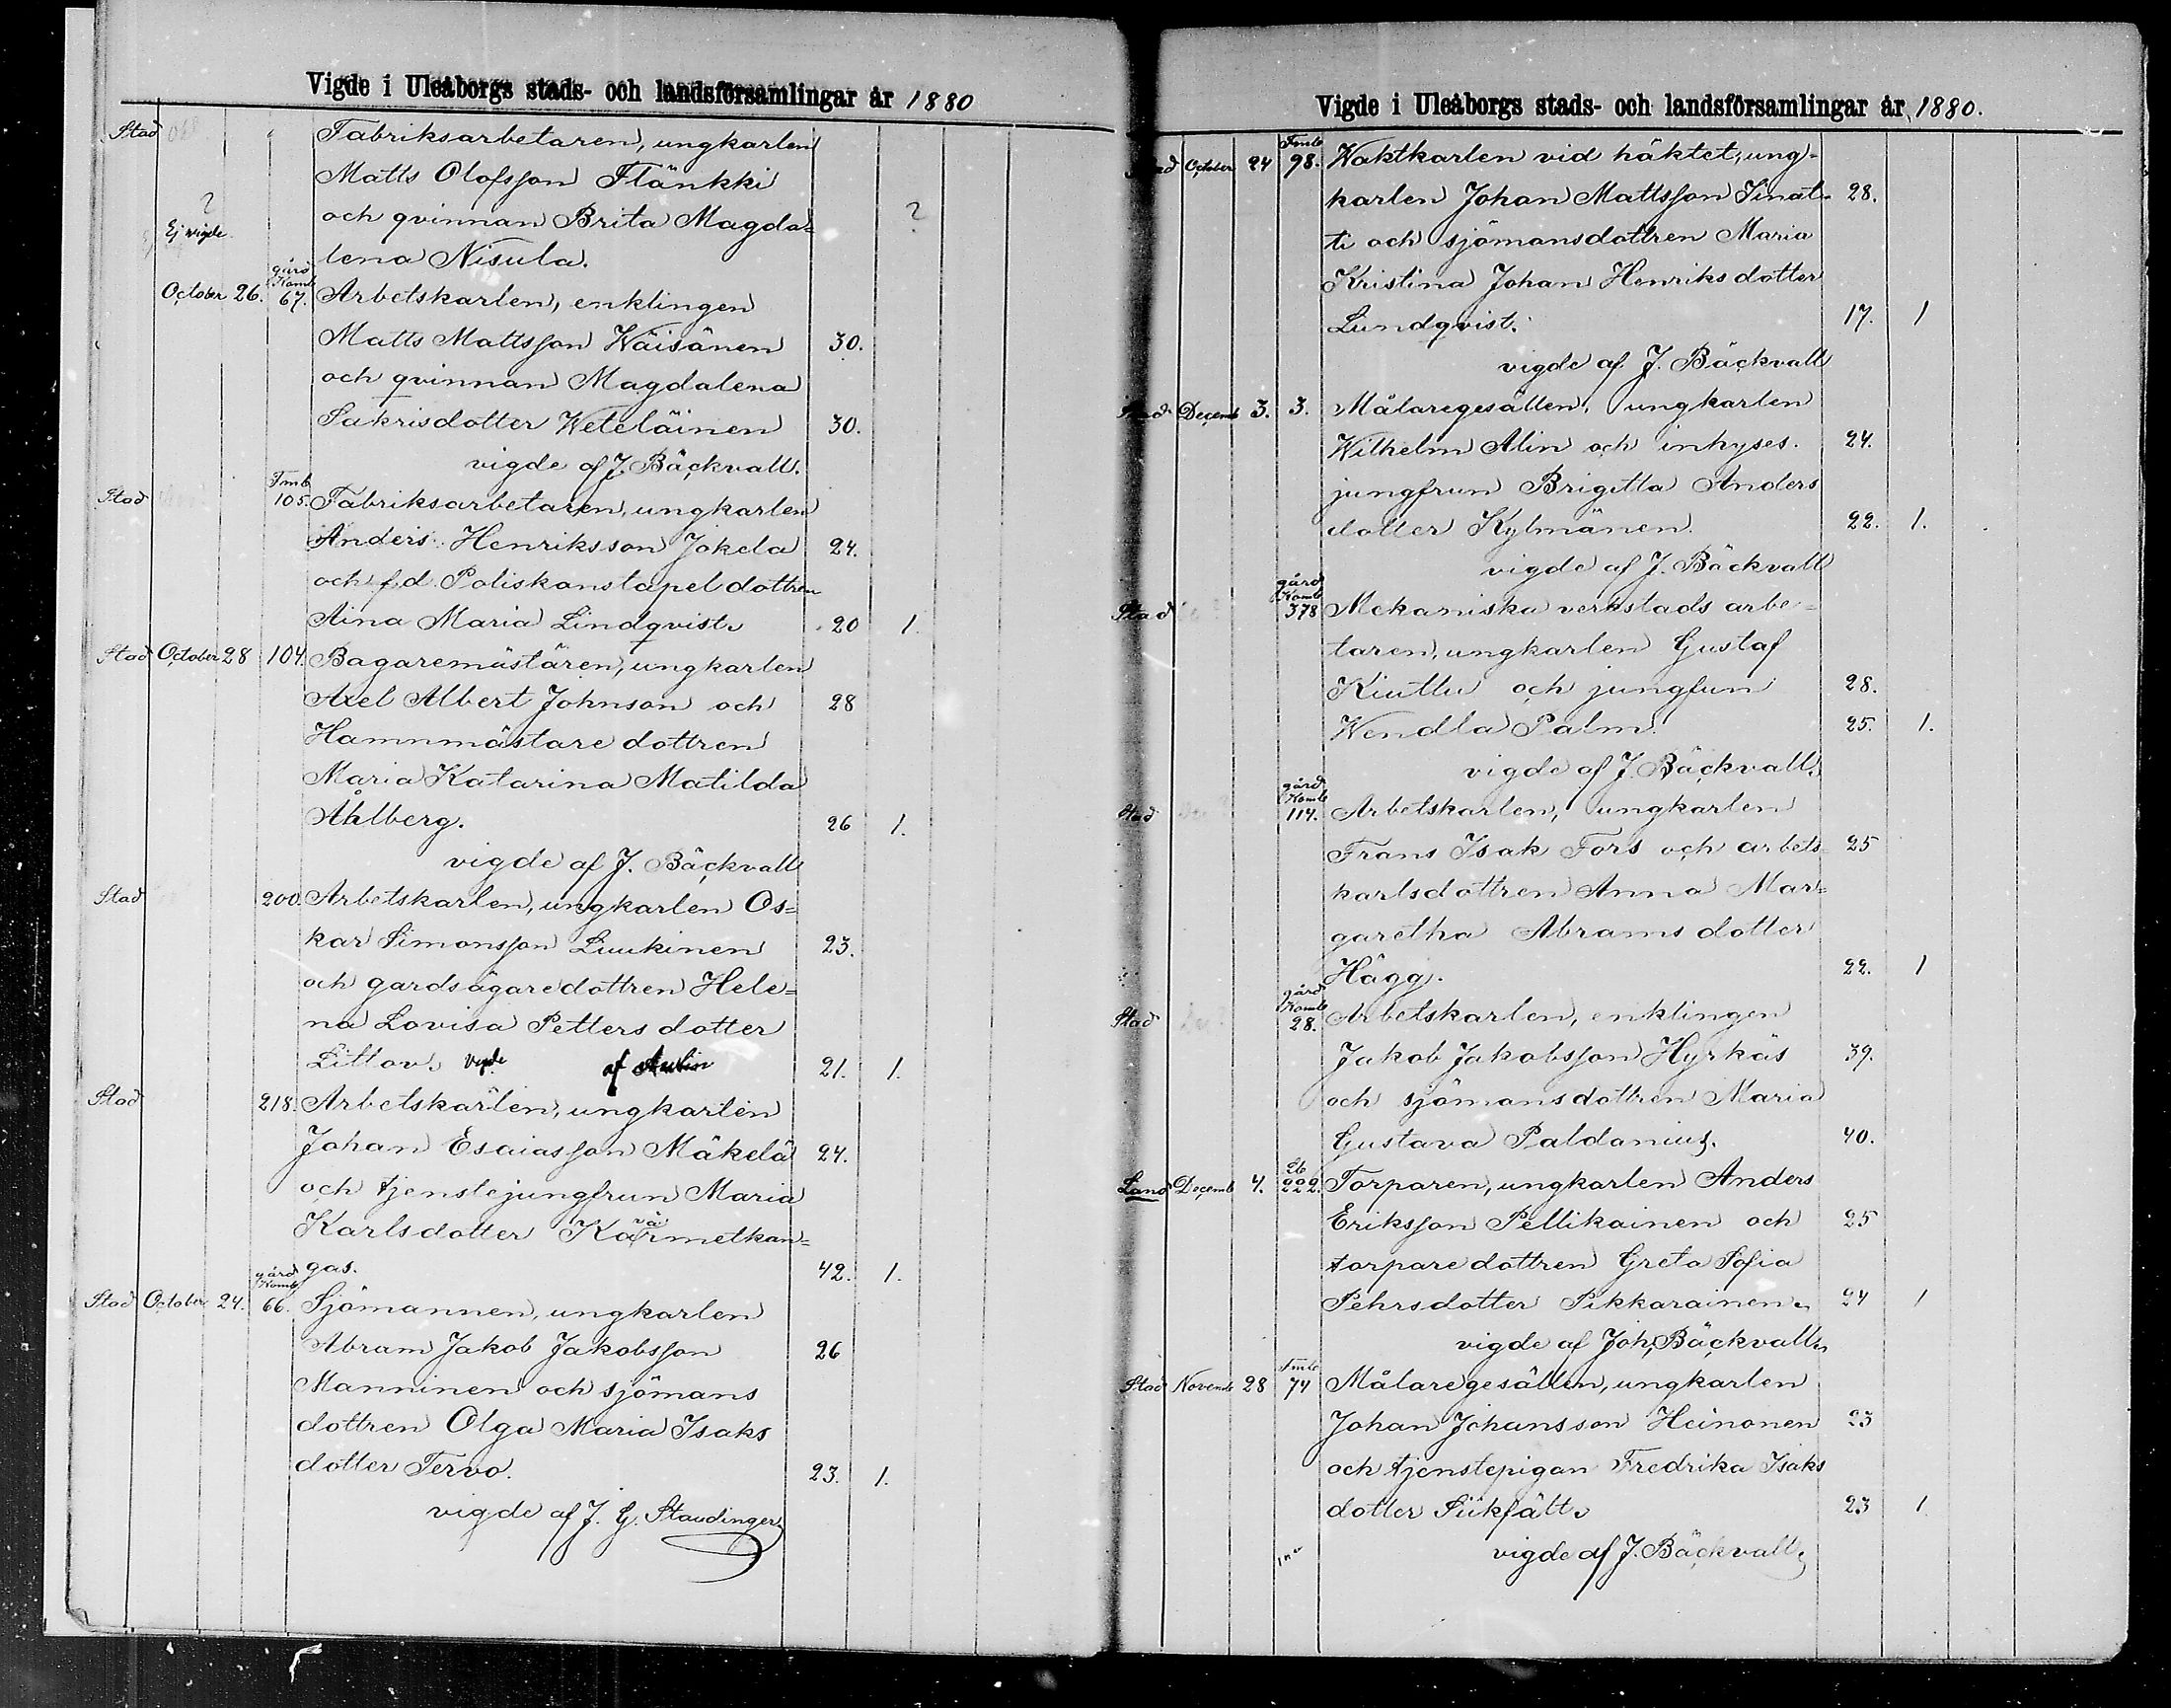 Vigde i Uleåborgs stads- och landsförsamlingar år 1880
Stad Fabriksarbetaren, ungkarlen
Matts Olofsson Flänkki
? och qvinnan Brita Magda= ?
Ej vigde lena Nisula.
October 26. gård Komb 67. Arbetskarlen, enklingen
Matts Mattsson Wäisänen 30.
och qvinnan Magdalena
Sakrisdotter Weteläinen 30.
vigde af J. Bäckvall.
Stad Fmb 105. Fabriksarbetaren, ungkarlen
Anders Henriksson Jokela 24.
och f.d. Poliskonstapel dottren
Aina Maria Lindqvist. 20 1.
Stad October 28 104. Bagaremästaren, ungkarlen
Axel Albert Johnson och 28
Hamnmästare dottren
Maria Katarina Matilda
Åhlberg. 26 1.
vigde af J. Bäckvall
Stad 200. Arbetskarlen, ungkarlen Os=
kar Simonsson Luukinen 23.
och gardsägaredottren Hele=
na Lovisa Petters dotter
Littov. vigde af Aulin 21. 1.
Stad 218. Arbetskarlen, ungkarlen
Johan Esaiasson Mäkelä 24.
och tjenstejungfrun Maria
Karlsdotter Karmetkan= vä
gas. 42. 1.
Stad October 24. gård Komb 66. Sjömannen, ungkarlen
Abram Jakob Jakobsson 26
Manninen och sjömans
dottren Olga Maria Isaks
dotter Tervo. 23. 1.
vigde af J. G. Staudinger
Vigde i Uleåborgs stads- och landsförsamlingar år 1880.
Stad October 24 Fmb 98. Waktkarlen vid häktet, ung-
karlen Johan Mattsson Sinat- 28.
ti och sjömansdottren Maria
Kristina Johan Henriksdotter
Lundqvist. 17. 1
vigde af J. Bäckvall
Stad Decemb 3. 3. Målaregesällen, ungkarlen
Wilhelm Alin och inhyses. 24.
jungfrun Brigitta Anders
dotter Kylmänen. 22. 1.
vigde af J. Bäckvall
Stad gård Komb 378 Mekaniska verkstads arbe=
taren, ungkarlen Gustaf
Kiuttu och jungfun 28.
Wendla Palm. 25. 1.
vigde af J. Bäckvall.
Stad gård Komb 114. Arbetskarlen, ungkarlen
Frans Isak Fors och arbets- 25
karlsdottren Anna Mar=
garetha Abrams dotter
Hägg. 22. 1
Stad gård Komb 28. Arbetskarlen, enklingen
Jakob Jakobsson Hyrkäs 39.
och sjömansdottren Maria
Gustava Paldanius. 40.
Land Decemb 4. Lb 222. Torparen, ungkarlen Anders
Eriksson Pellikainen och 25
torparedottren Greta Sofia
Pehrsdotter Pikkarainen. 24 1
vigde af Joh. Bäckvall.
Stad Novemb 28 Fmb 74 Målaregesällen, ungkarlen
Johan Johansson Heinonen 23
och tjenstepigan Fredrika Isaks
dotter Siikfält. 23 1
vigde af J. Bäckvall.